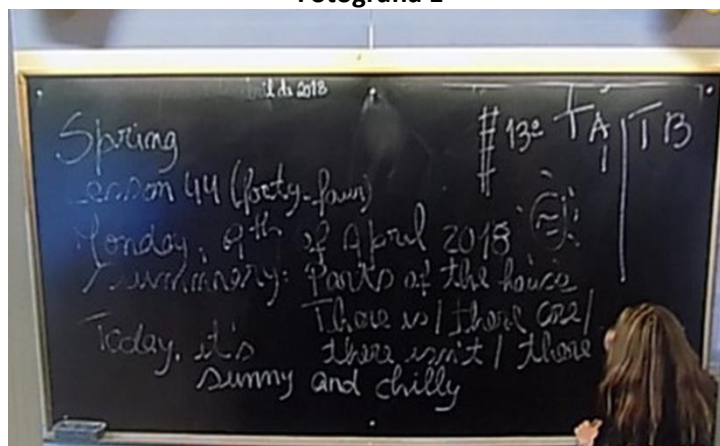 de 2018
Spring
Lesson 44 (forty-four)
# 13º TA | TB
Monday, 9th of April 2018
Summary: Parts of the house
There is / there are /
there isn't / there
Today, it's
sunny and chilly